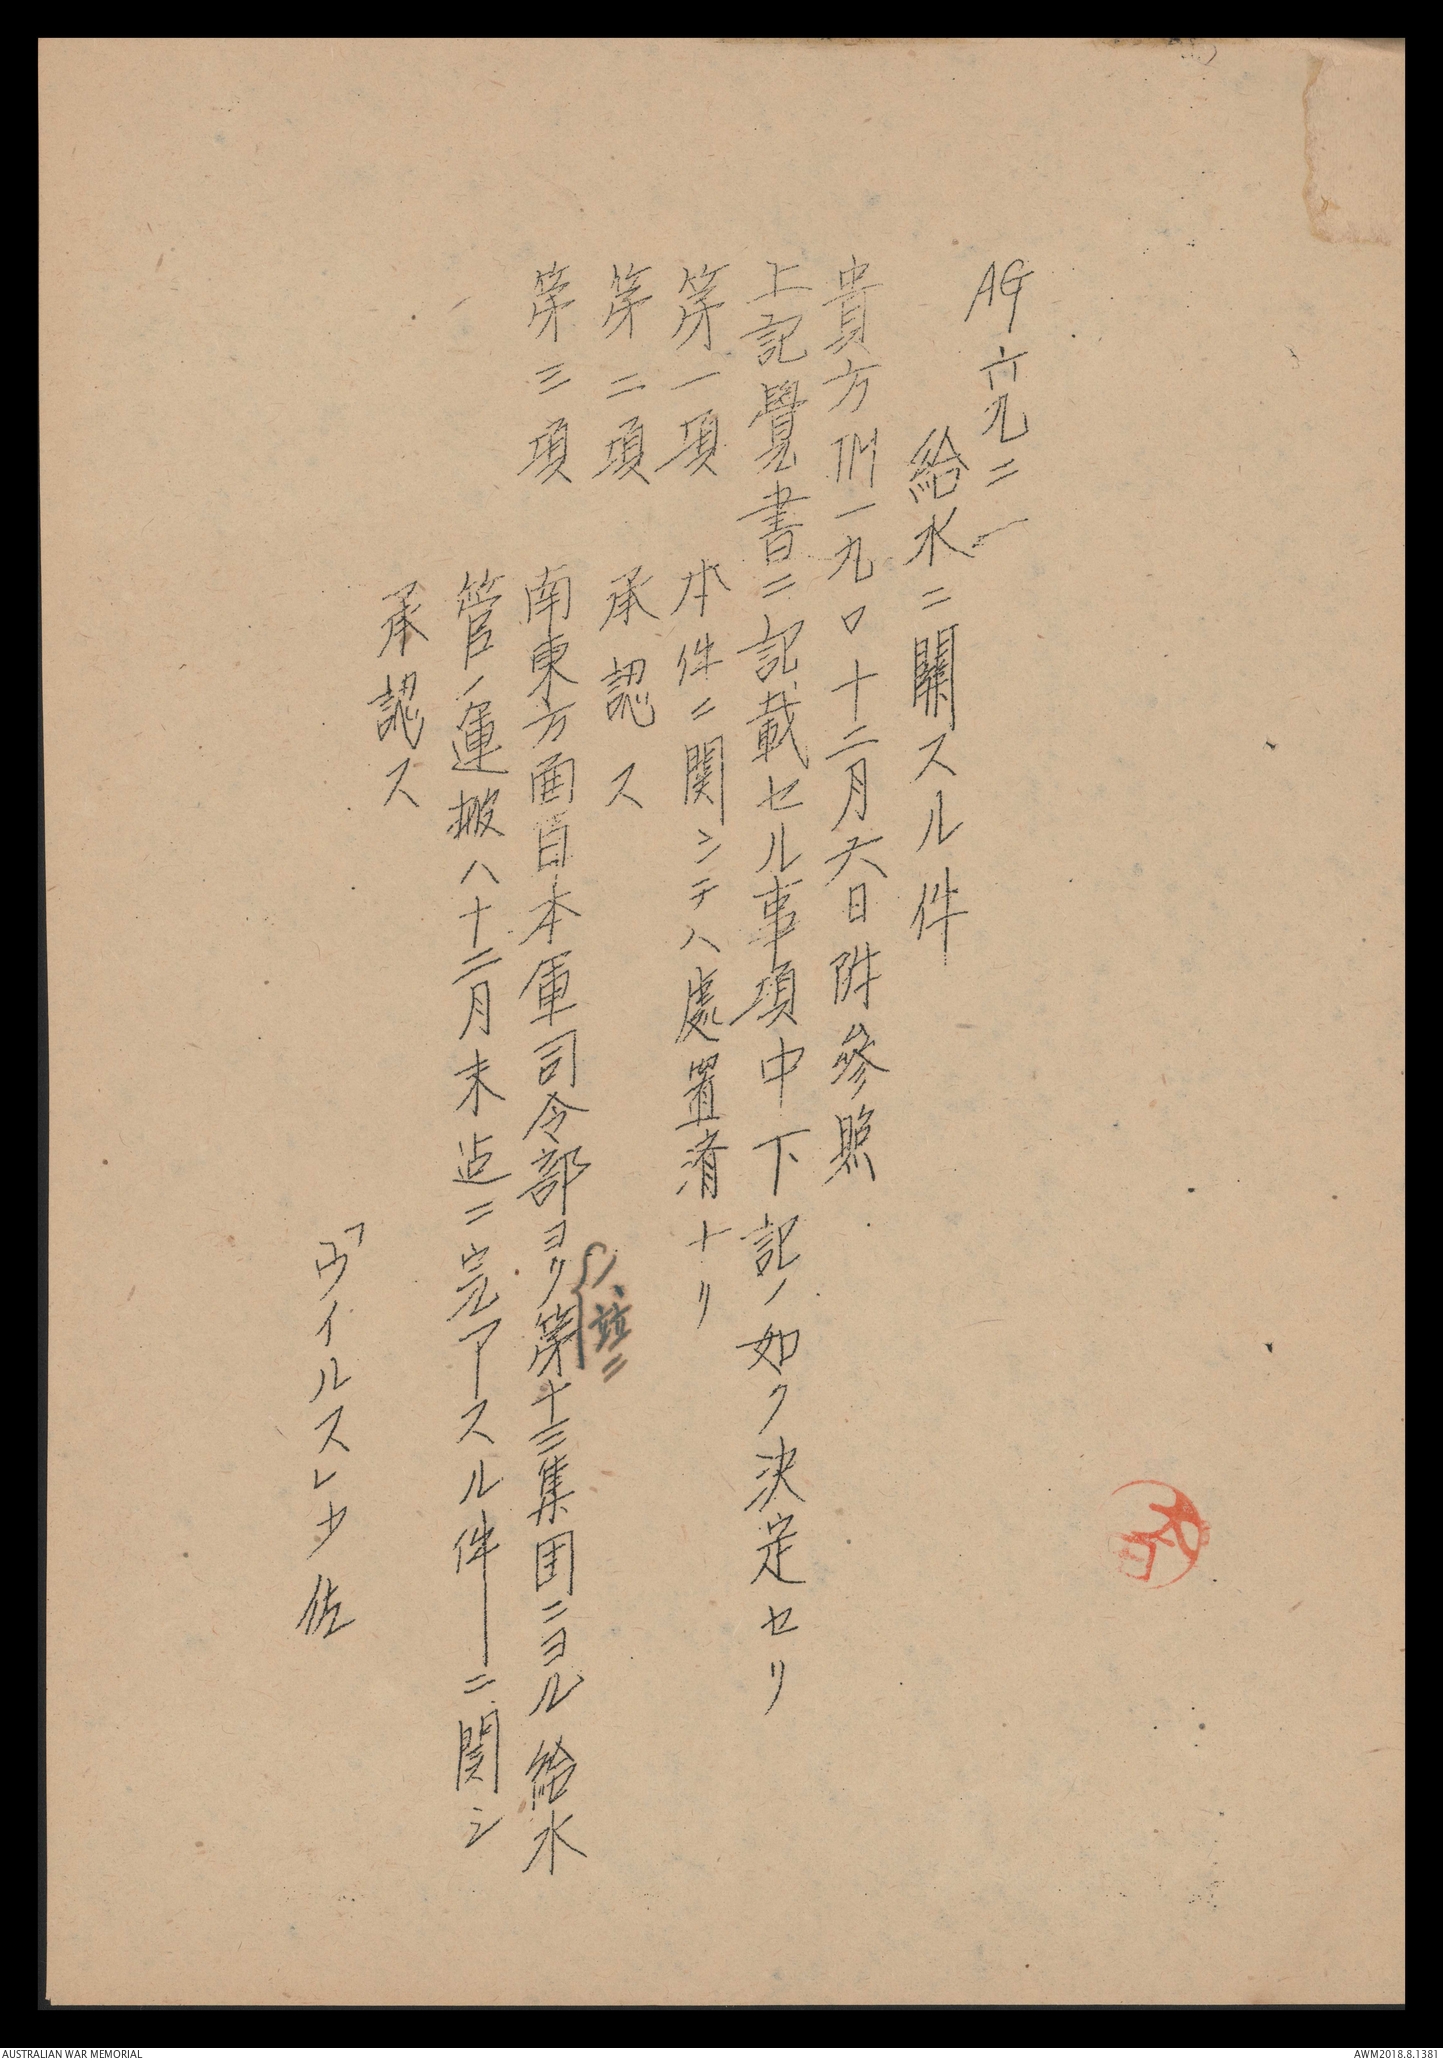 AG 六九二一
給水ニ關スル件
貴方州一九〇十二月六日附參照
上記覺書ニ記載セル事項中下記ノ如ク決定セリ
第一項 本件ニ関シテハ處置濟ナリ
第二項 承認ス
第三項 南東方面日本軍司令部ヨリ第十三集団ニヨル給水
管ノ運搬ハ十二月末迠ニ完了スル件ニ関シ
承認ス
ヴイルスレ少佐
AUSTRALIAN WAR MEMORIAL
AWM2018.8.1381